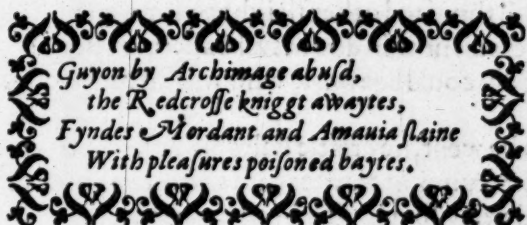 Guyon by Archimage abuſd,
the Redcroſſe kniggt awaytes,
Fyndes Mordant and Amauia ſlaine
With pleaſures poiſoned baytes.